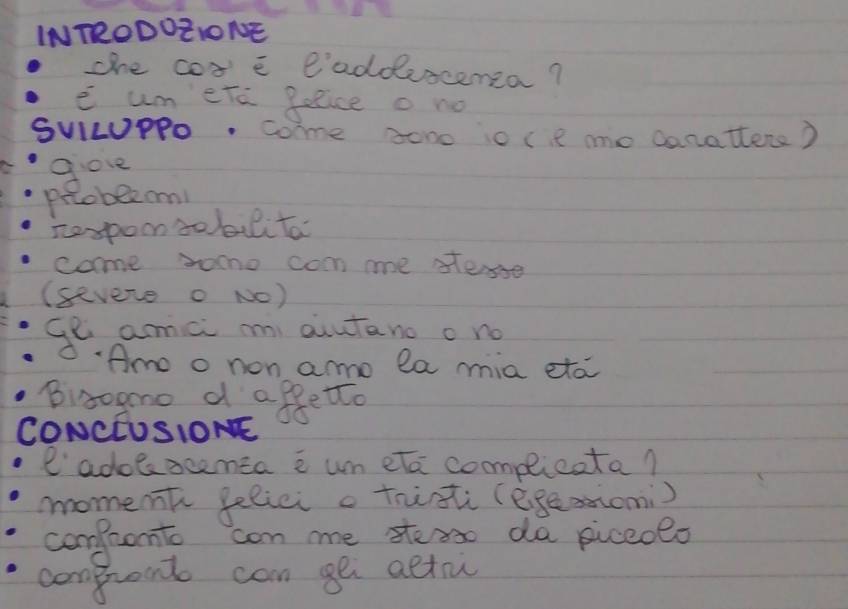 INTRODUZIONE
• che cos'è l'adolescenza?
• è un'età felice o no
SVILUPPO • come sono io (e mio carattere)
• gioie
• problemi
• responsabilità
• come sono con me stesso
(severo o NO)
• gli amici mi aiutano o no
• Amo o non amo la mia età
• Bisogno d'affetto
CONCLUSIONE
• l'adolescenza è un età complicata?
• momenti felici o tristi (riflessioni)
• confronto con me stesso da piccolo
• confronto con gli altri